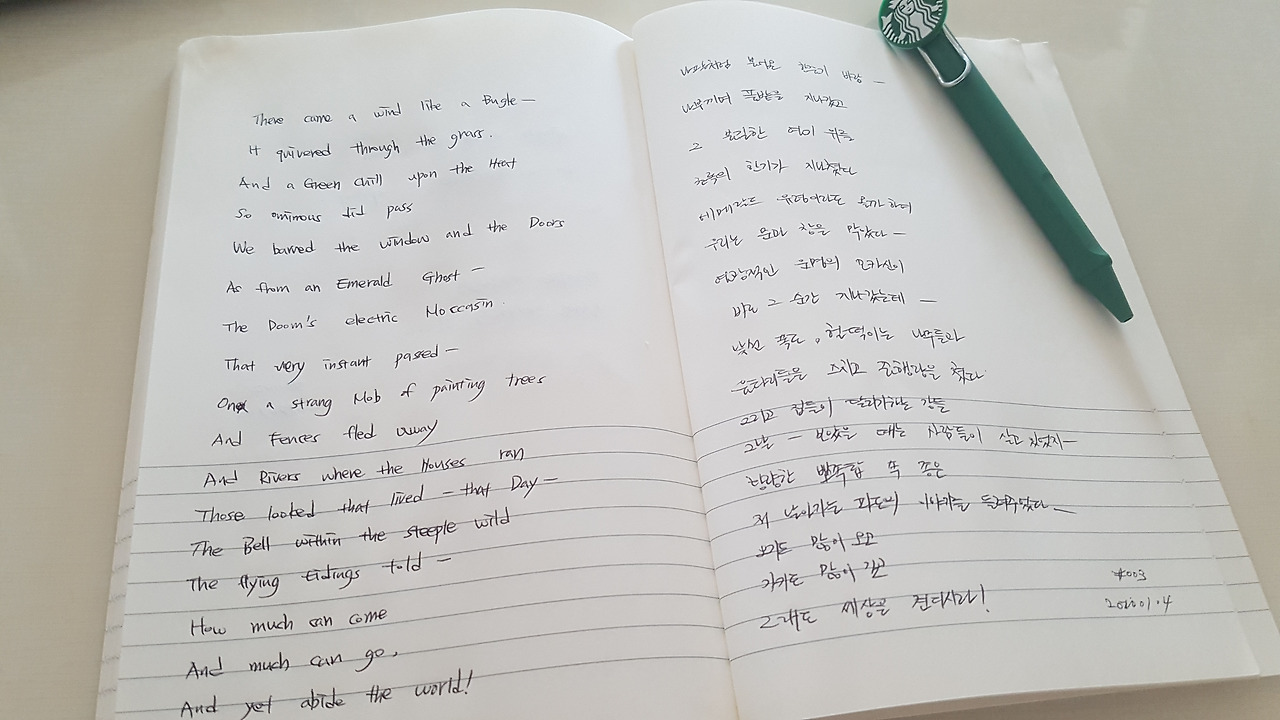 There came a wind like a Bugle —
It quivered through the grass.
And a Green Chill upon the Heat
So ominous did pass
We barred the window and the Doors
As from an Emerald Ghost —
The Doom's electric Moccasin.
That very instant passed —
On a strang Mob of painting trees
And Fences fled away
And Rivers where the Houses ran
Those looked that lived — that Day —
The Bell within the steeple wild
The flying tidings told —
How much can come
And much can go,
And yet abide the world!
나팔처럼 불어온 한줄기 바람 —
나부끼며 풀밭을 지나가고
그 불길한 열이 위를
초록의 한기가 지나쳤다
에메랄드 유령이라도 쫓아 하며
우리는 문과 창을 막았다 —
운명의 모카신이
바로 그 순간 지나갔는데 —
낯선 폭도, 헐떡이는 나무들과
울타리들은 스치고 줄행랑을 쳤다
그리고 집들이 달리기하는 강들
그날 — 보았을 때는 사람들이 살고 있었지 —
뾰족탑 속 종은
저 날아가는 파도의 이야기를 들려주었다 —
오기도 많이 오고
가기도 많이 갔고
그래도 세상을 견디시라!
#003
2020.01.4